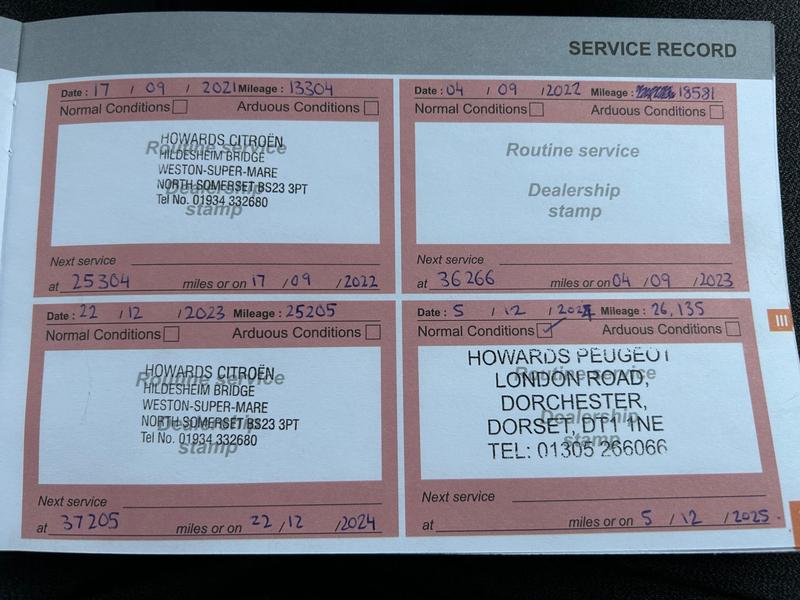 SERVICE RECORD
Date : 17 / 09 / 2021 Mileage : 13304
Normal Conditions Arduous Conditions
Routine service
Dealership
stamp
HOWARDS CITROËN
HILDESHEIM BRIDGE
WESTON-SUPER-MARE
NORTH SOMERSET BS23 3PT
Tel No. 01934 332680
Next service
at 25304 miles or on 17 / 09 / 2022
Date : 04 / 09 / 2022 Mileage : 18581
Normal Conditions Arduous Conditions
Routine service
Dealership
stamp
Next service
at 36266 miles or on 04 / 09 / 2023
Date : 22 / 12 / 2023 Mileage : 25205
Normal Conditions Arduous Conditions
Routine service
Dealership
stamp
HOWARDS CITROËN
HILDESHEIM BRIDGE
WESTON-SUPER-MARE
NORTH SOMERSET BS23 3PT
Tel No. 01934 332680
Next service
at 37205 miles or on 22 / 12 / 2024
Date : 5 / 12 / 2024 Mileage : 26,135
Normal Conditions ✓ Arduous Conditions
Routine service
Dealership
stamp
HOWARDS PEUGEOT
LONDON ROAD,
DORCHESTER,
DORSET, DT1 1NE
TEL: 01305 266066
Next service
at miles or on 5 / 12 / 2025
III